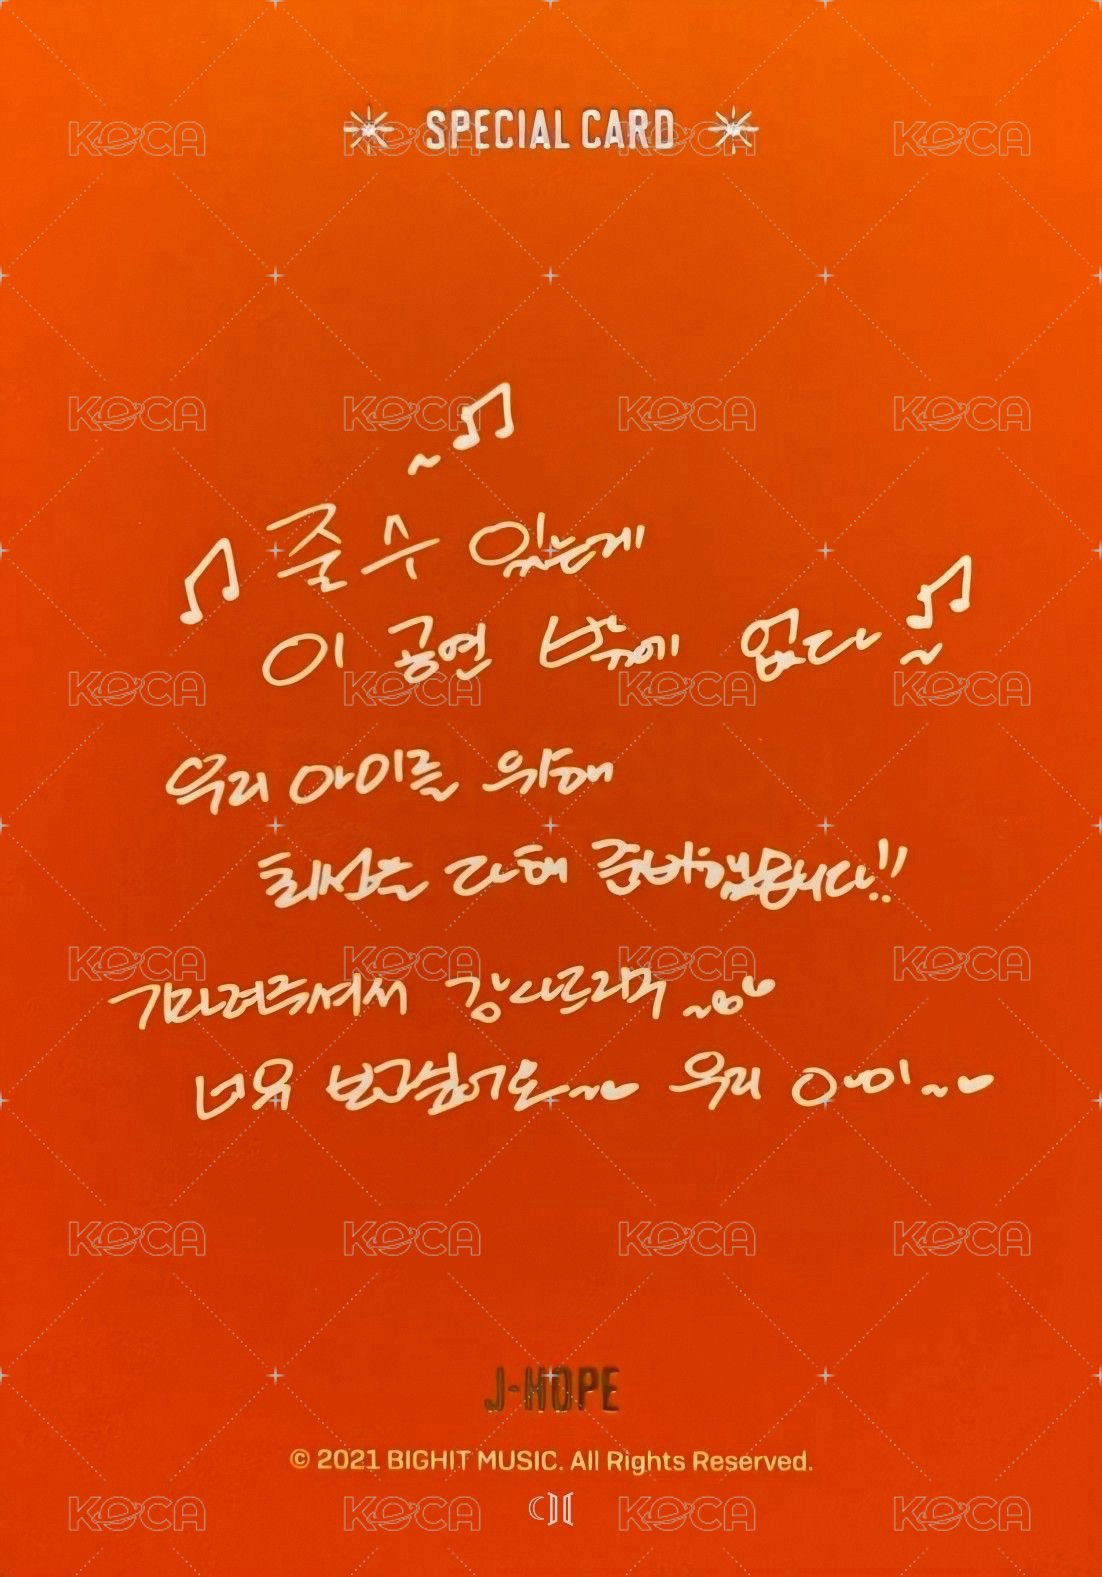 SPECIAL CARD
~♫
♫ 줄 수 있는게
이 공연 밖에 없다~♫
우리 아미를 위해
최선을 다해 준비했습니다!!
기다려주셔서 감사드리며~
너무 보고싶어요~♥ 우리 아미~♥
J-HOPE
© 2021 BIGHIT MUSIC. All Rights Reserved.
KOCA